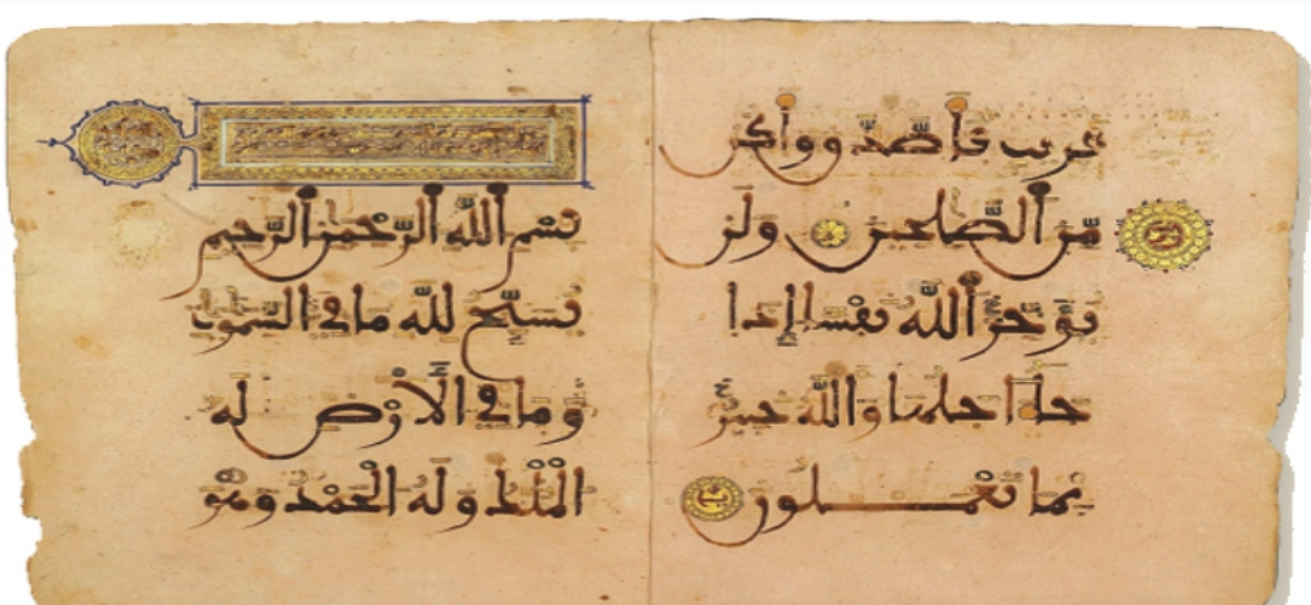 قريب فأصدق وأكن
من الصلحين ولن
يؤخر الله نفسا إذا
جا أجلها والله خبير
بما تعملون
بسم الله الرحمن الرحيم
يسبح لله ما في السموت
وما في الأرض له
الملك وله الحمد وهو